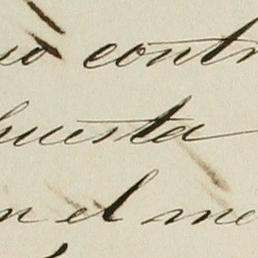 no contr
huesta
n el me